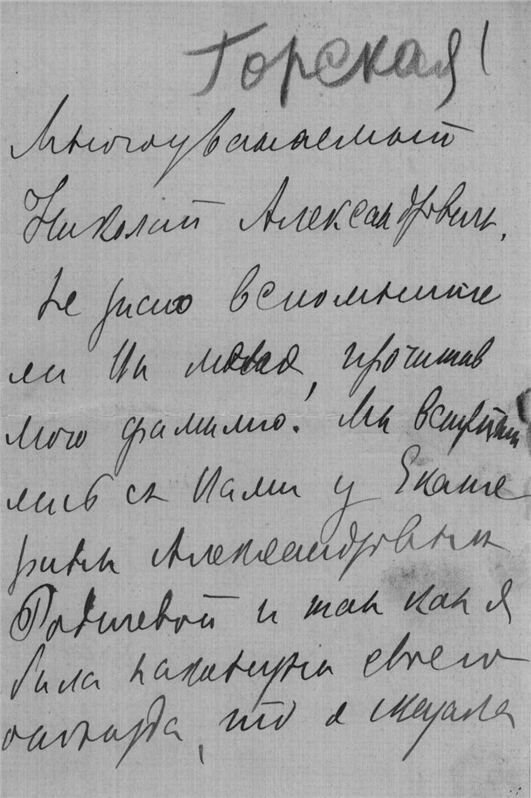 Горская!
Многоуважаемый
Николай Александрович,
Не знаю вспомните
ли Вы меня, прочитав
мою фамилию! Мы встрети
лись съ Вами у Екате
рины Александровны
Родичевой и такъ какъ я
была наканунѣ своего
отъѣзда, то я